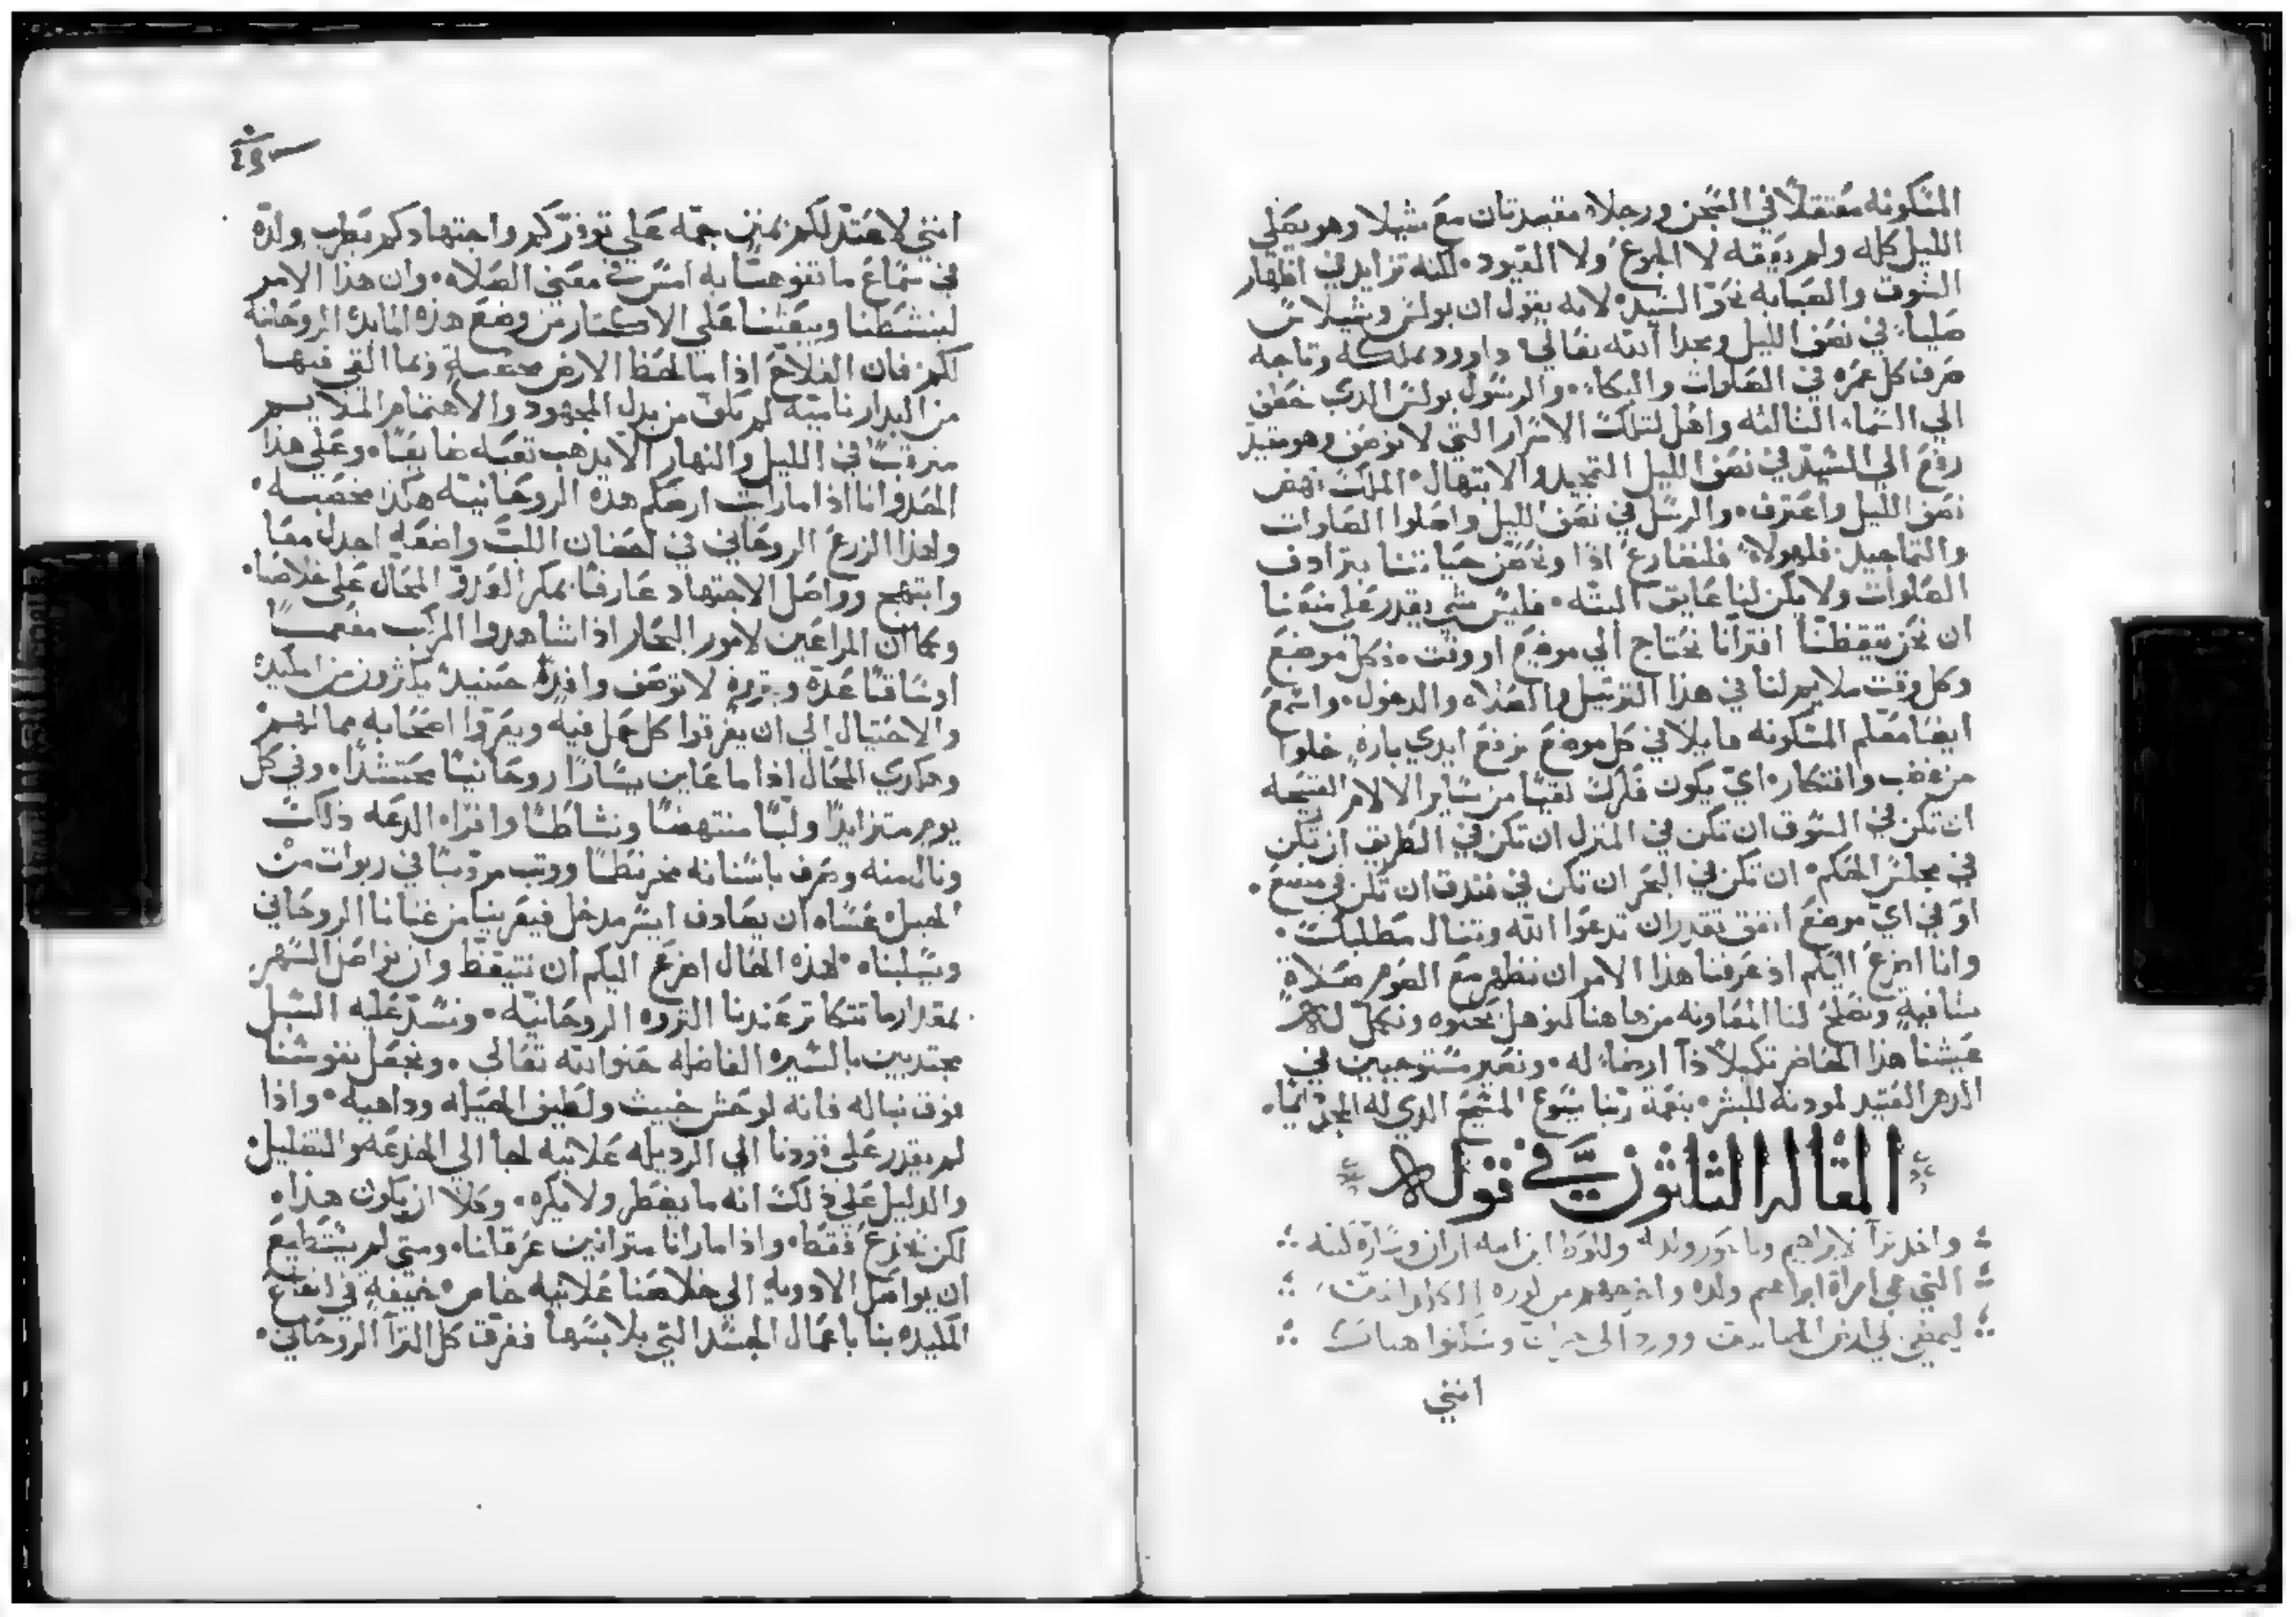 المسكونه معتقلًا في السجن ورجلاه مقيدتان مع شيلا وهو يصلي
الليل كله ولم يعقه لا الوجع ولا القيود لكنه تزايد في اظهار
الشوق والصبابه نحو السيد لانه يقول ان بولس وشيلا
صليا في نصف الليل ومجدا الله تعالي داوود مملكه وتاجه
صرف كل عمره في الصلوات والبكاء والرسول بولس الدي خطف
الي السماء الثالثه واهل لتلك الاسرار التي لا توصف وهو مقيد
رفع الي السيد في نصف الليل التمجيد والابتهال الملك نهض
نصف الليل واعترف والرسل في نصف الليل واصلوا الصلوات
والتماجيد فلهولاء فلنضارع اذًا ونحصن حياتنا بترادف
الصلوات ولا يكن لنا عايق البته فليس شي يقدر على منعنا
ان نحن تيقظنا اترانا نحتاج الي موضع او وقت كل موضع
وكل وقت ملايم لنا في هذا الترتيل والصلاه والدخول واسمع
ايضا معلم المسكونه قايلا في كل موضع نرفع ايدي باره خلوا
من غضب وافتكار اي يكون فكرك نقيا من ساير الالام القبيحه
ان تكن في السوق ان تكن في المنزل ان تكن في الطريق ان تكن
في مجلس الحكم ان تكن في البحر ان تكن في فندق ان تكن في
او في اي موضع اتفق تقدر ان تدعوا الله وتنال مطلبك
وانا اضرع اليكم اذ عرفنا هذا الامر ان نظهر مع الصوم صلاة
شافية ونصلح لنا المعاونه من هاهنا لنوهل نحنوه ونكمل
عيشنا هذا الحاضر تكميلًا ذا ارضاء له ونصير مستوجبين في
الدهر العتيد لمودته للبشر بنعمة ربنا يسوع المسيح الدي له المجد دايما
المقاله الثلثون في قوله
واخد ترآ لابراهيم وناحور ولده وللوط ابن ابنه اران وساره كنته
التي هي امراة ابراهيم ولده واخرجهم من كورة الكلدانيين
ليمضي الي ارض الكنعانيين وورد الي حران وسكنوا هناك
انني
انني لاعتد لكم بمنن جمه علي توفركم واجتهادكم بطرب ولده
في سماع ما تفوهنا به امس في معني الصلاه وان هذا الامر
لينشطنا ويبعثنا على الاكتار من وضع هذه المايده الروحانه
لكم فان الفلاح اذا ما لحظ الارض مخصبة وما القي فيها
من البدار ناميًه لم يكف من بدل المجهود والاهتمام الملايم
مترقبا في الليل والنهار الا يدهب تعبه ضايعًا وعلي هذا
الحدو انا اذا ما رايت ارضكم هذه الروحانيه هكذا مخصبه
وهذا الزرع الروحاني في احضان اللب واضعه اجدل معا
وابتهج وواصل الاجتهاد عارفًا بمكر العدو المحال على خلاصنا
وكما ان المراعين لامور البحار اذا شاهدوا المركب مفعمًا
اوساقًا عدة وثروة لا توصف وافره حينيد يكثرون من المكيده
والاحتيال الي ان يغرقوا كل حمل فيه ويعروا اصحابه مما لهم
وهكدي المحال اذا ما عاين يسارًا روحانيا محتشدًا وفي كل
يوم متزايدًا ولبًا منتهضا ونشاطًا واثراء الدعه ذلك
ونال منه وصرف باسنانه مخرنطما ووتب مرة في ربوات من
الحيل عساه ان يصادف ايسر مدخل فيعرينا من غنانا الروحاني
ويسلبناه لهذه الحال اضرع اليكم ان نتيقظ وان نواصل السهر
بمقدار ما تتكاتر عندنا التروه الروحانيه ونسد عليه السبل
مجتدبين بالسيره الفاضله حنو الله تعالي ونجعل نفوسنا
فوق نباله فانه لوحش خبيث ولطيف الحيله وداهيه واذا
لم يقدر علي قودنا الي الرديله علانيه لجأ الي الخدعه والتضليل
والدليل على ذلك انه ما يضطر ولا يكره وكلا ان يكون هذا
لكن يخدع فقط واذا ما رانا متوانين عرقلنا ومتي لم يستطيع
ان يواصل الاذويه الي خلاصنا علانيه خامر خيفة في ايقاع
المكيده بنا باعمال الجسد التي يلابسها فغرق كل الثرآ الروحاني